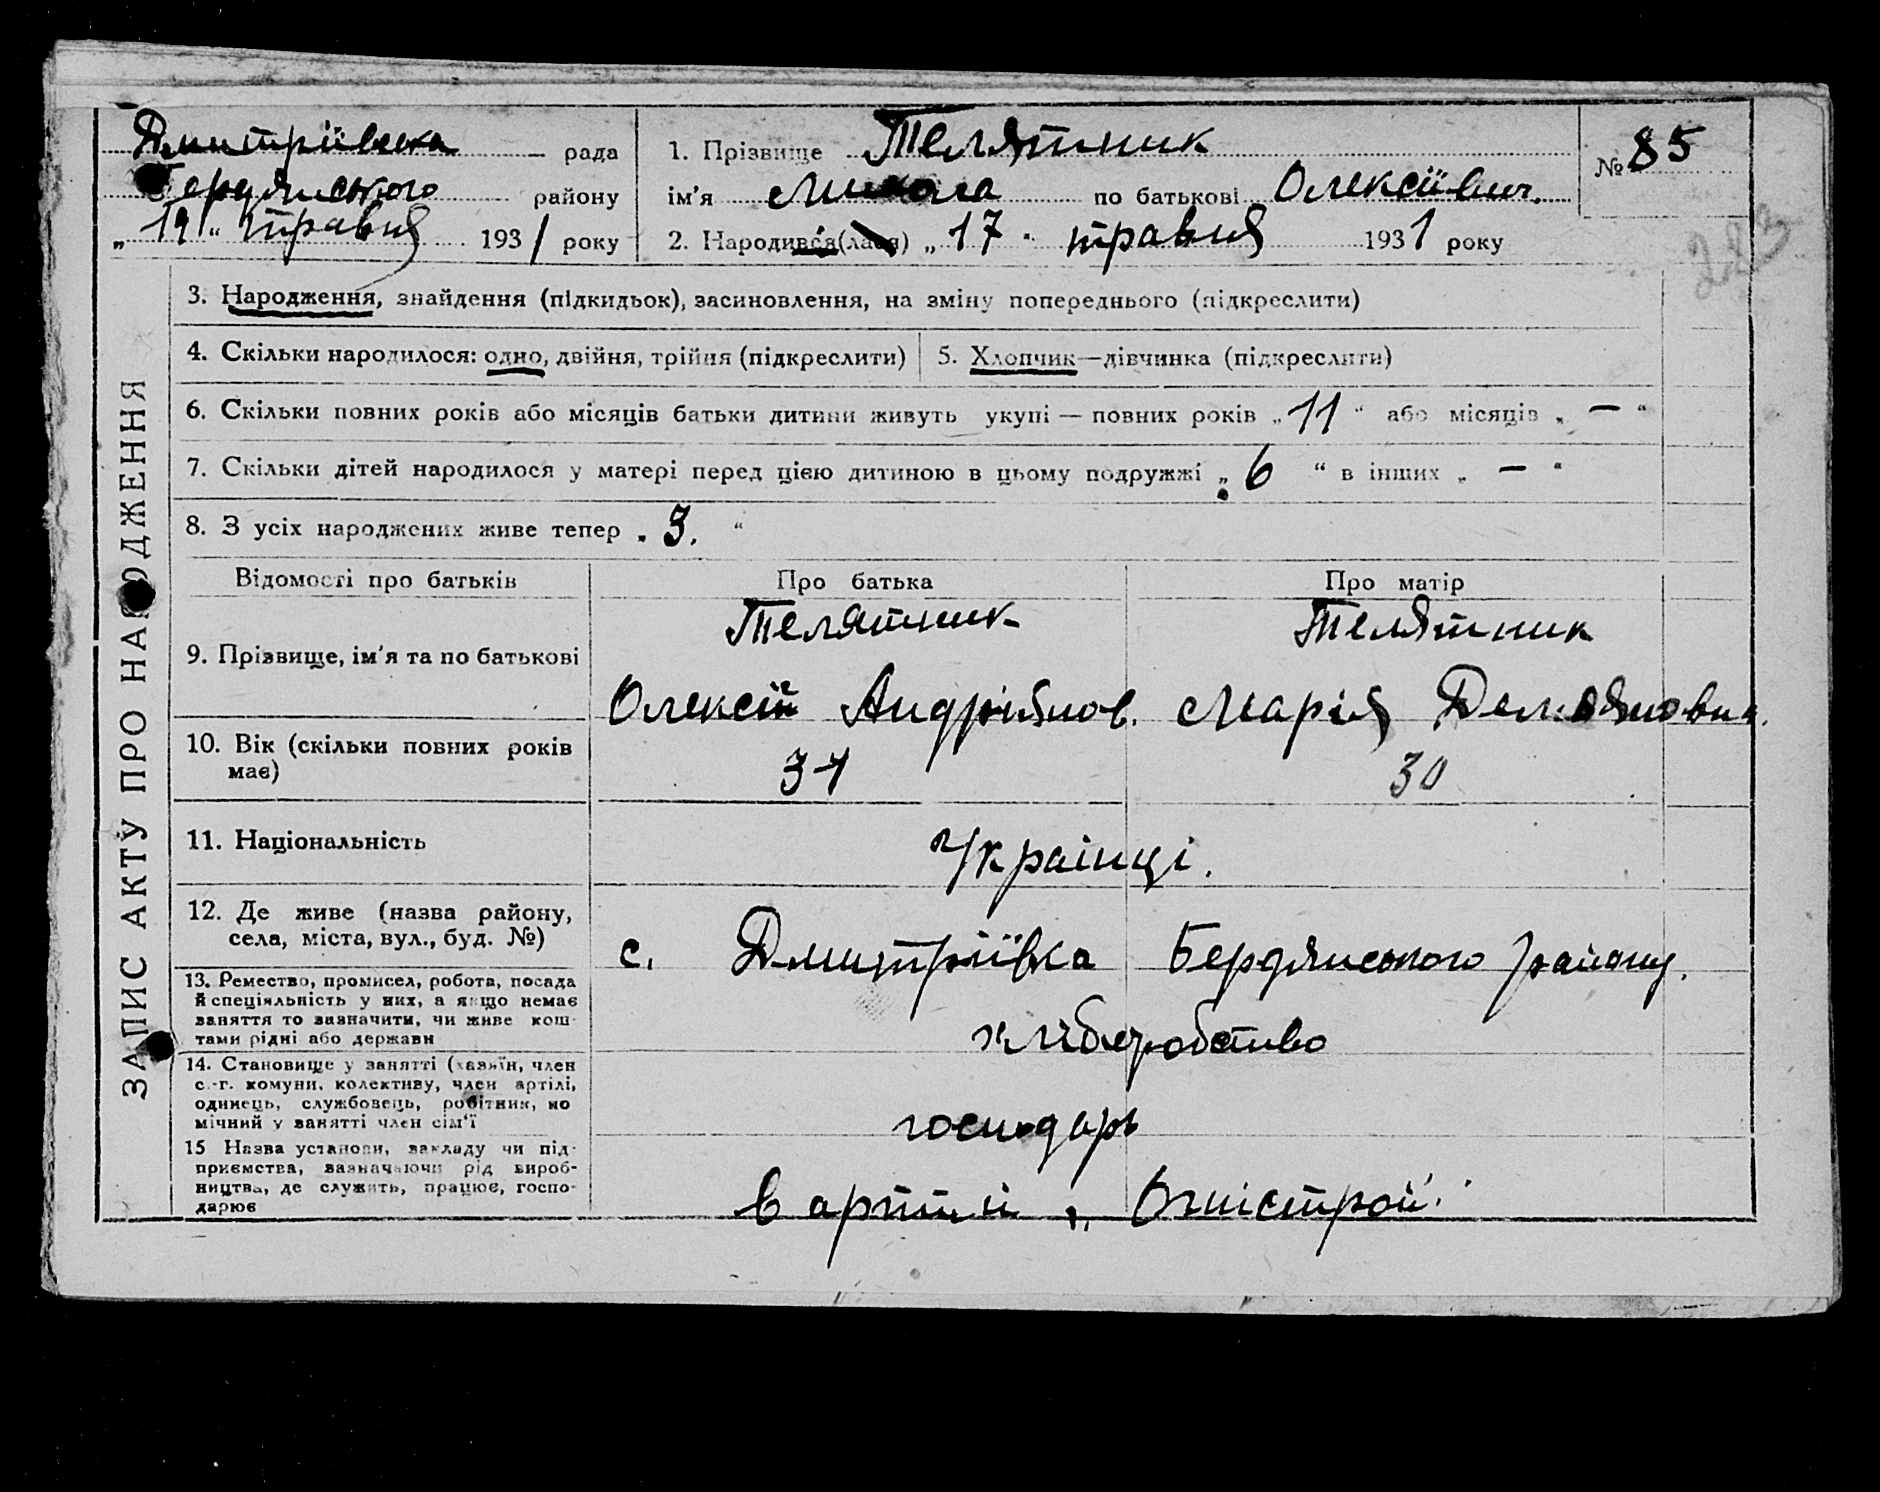 Дмитріївська рада
Бердянського району
„19“ травня 1931 року
1. Прізвище Телятник
ім'я Микола по батькові Олексіївич.
2. Народився(лася) „17“ травня 1931 року
№ 85
223
3. Народження, знайдення (підкидьок), засиновлення, на зміну попереднього (підкреслити)
4. Скільки народилося: одно, двійня, трійня (підкреслити)
5. Хлопчик—дівчинка (підкреслити)
6. Скільки повних років або місяців батьки дитини живуть укупі — повних років „11“ або місяців „—“
7. Скільки дітей народилося у матері перед цією дитиною в цьому подружжі „6“ в інших „—“
8. З усіх народжених живе тепер „3.“
ЗАПИС АКТУ ПРО НАРОДЖЕННЯ
Відомості про батьків
Про батька
Про матір
9. Прізвище, ім'я та по батькові
Телятник
Олексій Андріянов.
Телятник
Марія
10. Вік (скільки повних років
має)
30
11. Національність
Українці.
12. Де живе (назва району,
села, міста, вул., буд. №)
с. Дмитріївка Бердянського району.
13. Ремество, промисел, робота, посада
й спеціяльність у них, а якщо немає
заняття то зазначити, чи живе кош-
тами рідні або держави
хліборобство
14. Становище у занятті (хазяїн, член
с.-г. комуни, колективу, член артілі,
одинець, службовець, робітник, по
мічний у занятті член сім'ї
господарь
15 Назва установи, закладу чи під-
приємства, зазначаючи рід вироб-
ництва, де служить, працює, госпо-
дарює
в артілі